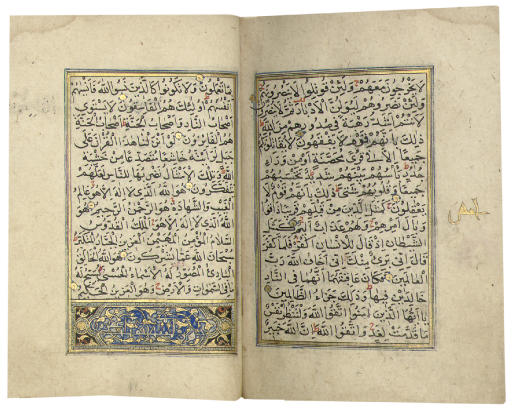 لا يخرجون معهم ولئن قوتلوا لا ينصرونهم
ولئن نصروهم ليولن الادبار ثم
لا ينصرون لانتم اشد رهبة في صدورهم من الله
ذلك بانهم قوم لا يفقهون لا يقاتلونكم
جميعا الا في قرى محصنة او من وراء
جدر باسهم بينهم شديد تحسبهم
جميعا وقلوبهم شتى ذلك بانهم قوم لا
يعقلون كمثل الذين من قبلهم قريبا ذاقوا
وبال امرهم ولهم عذاب اليم كمثل
الشيطان اذ قال للانسان اكفر فلما كفر
قال اني برئ منك اني اخاف الله رب
العالمين فكان عاقبتهما انهما في النار
خالدين فيها وذلك جزاء الظالمين
يا ايها الذين امنوا اتقوا الله ولتنظر نفس
ما قدمت لغد واتقوا الله ان الله خبير
بما تعملون ولا تكونوا كالذين نسوا الله فانسيهم
انفسهم اولئك هم الفاسقون لا يستوي
اصحاب النار واصحاب الجنة اصحاب الجنة
هم الفايزون لو انزلنا هذا القرآن على
جبل لرايته خاشعا متصدعا من خشية
الله وتلك الامثال نضربها للناس لعلهم
يتفكرون هو الله الذي لا اله الا هو عالم
الغيب والشهادة هو الرحمن الرحيم هو
الله الذي لا اله الا هو الملك القدوس
السلام المؤمن المهيمن العزيز الجبار المتكبر
سبحان الله عما يشركون هو الله الخالق
البارئ المصور له الاسماء الحسنى يسبح له
ما في السموات والارض وهو العزيز الحكيم